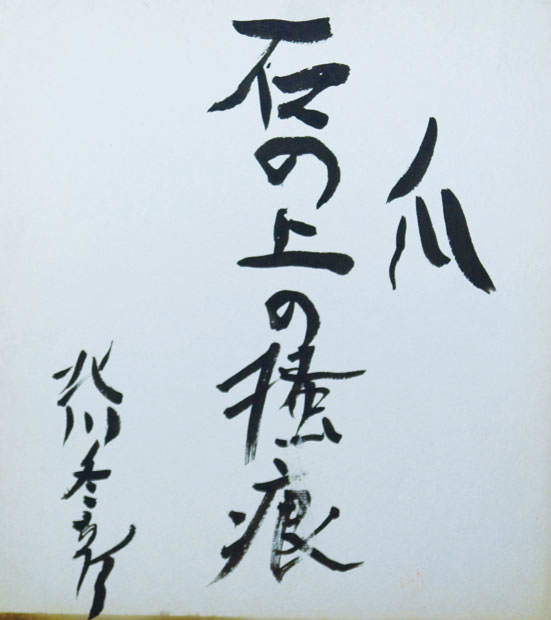 爪
石の上の搔痕
北川冬彦